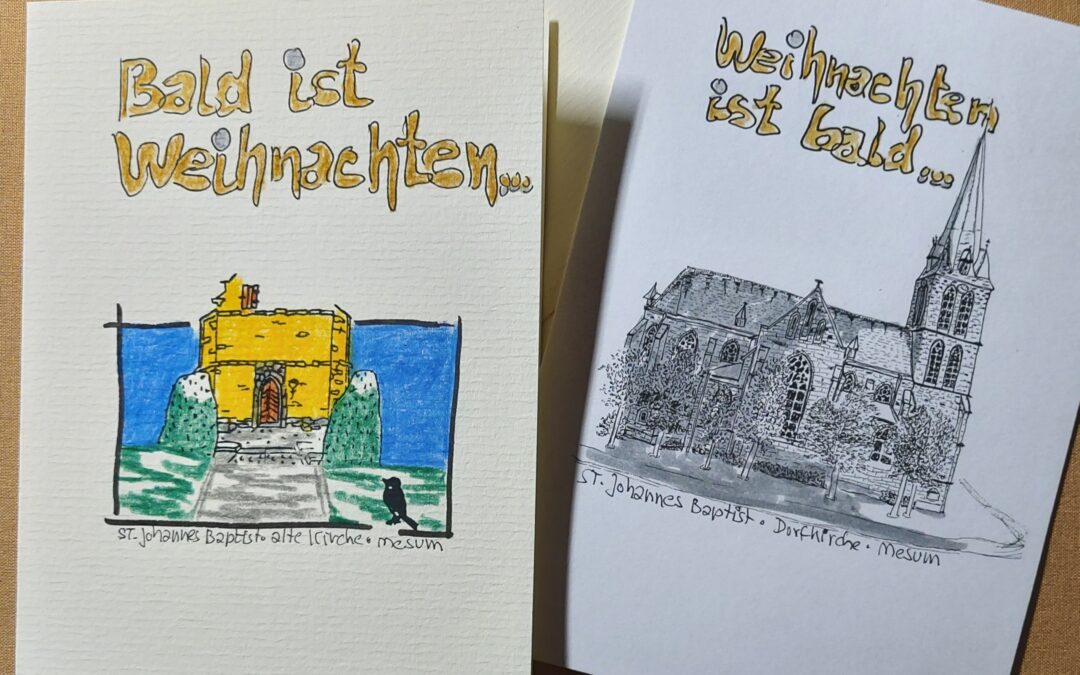 Bald ist
Weihnachten...
St. Johannes Baptist • alte Kirche • Mesum
Weihnachten
ist bald...
St. Johannes Baptist • Dorfkirche • Mesum